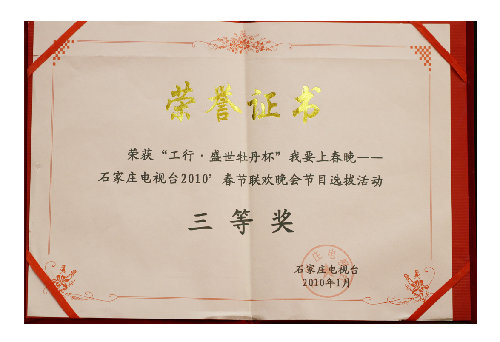 荣誉证书
荣获“工行·盛世牡丹杯”我要上春晚——
石家庄电视台2010’春节联欢晚会节目选拔活动
三等奖
石家庄电视台
2010年1月